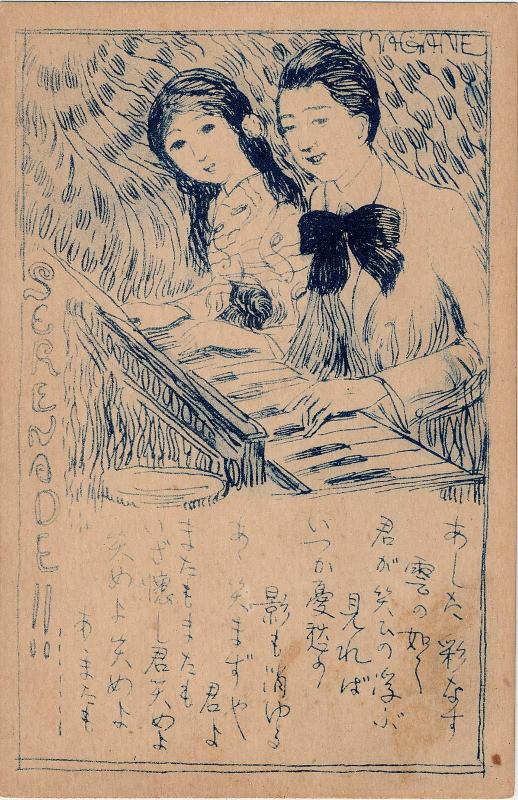 MAGANE
SERENADE!!
あした 彩なす
雲の如く
君が笑ひの浮ぶ
見れば
いつか憂愁の
影も消ゆる
あゝ笑まずや
君よ
またもまたも
いざ懐し君笑めよ
笑めよ笑めよ
あゝまたも